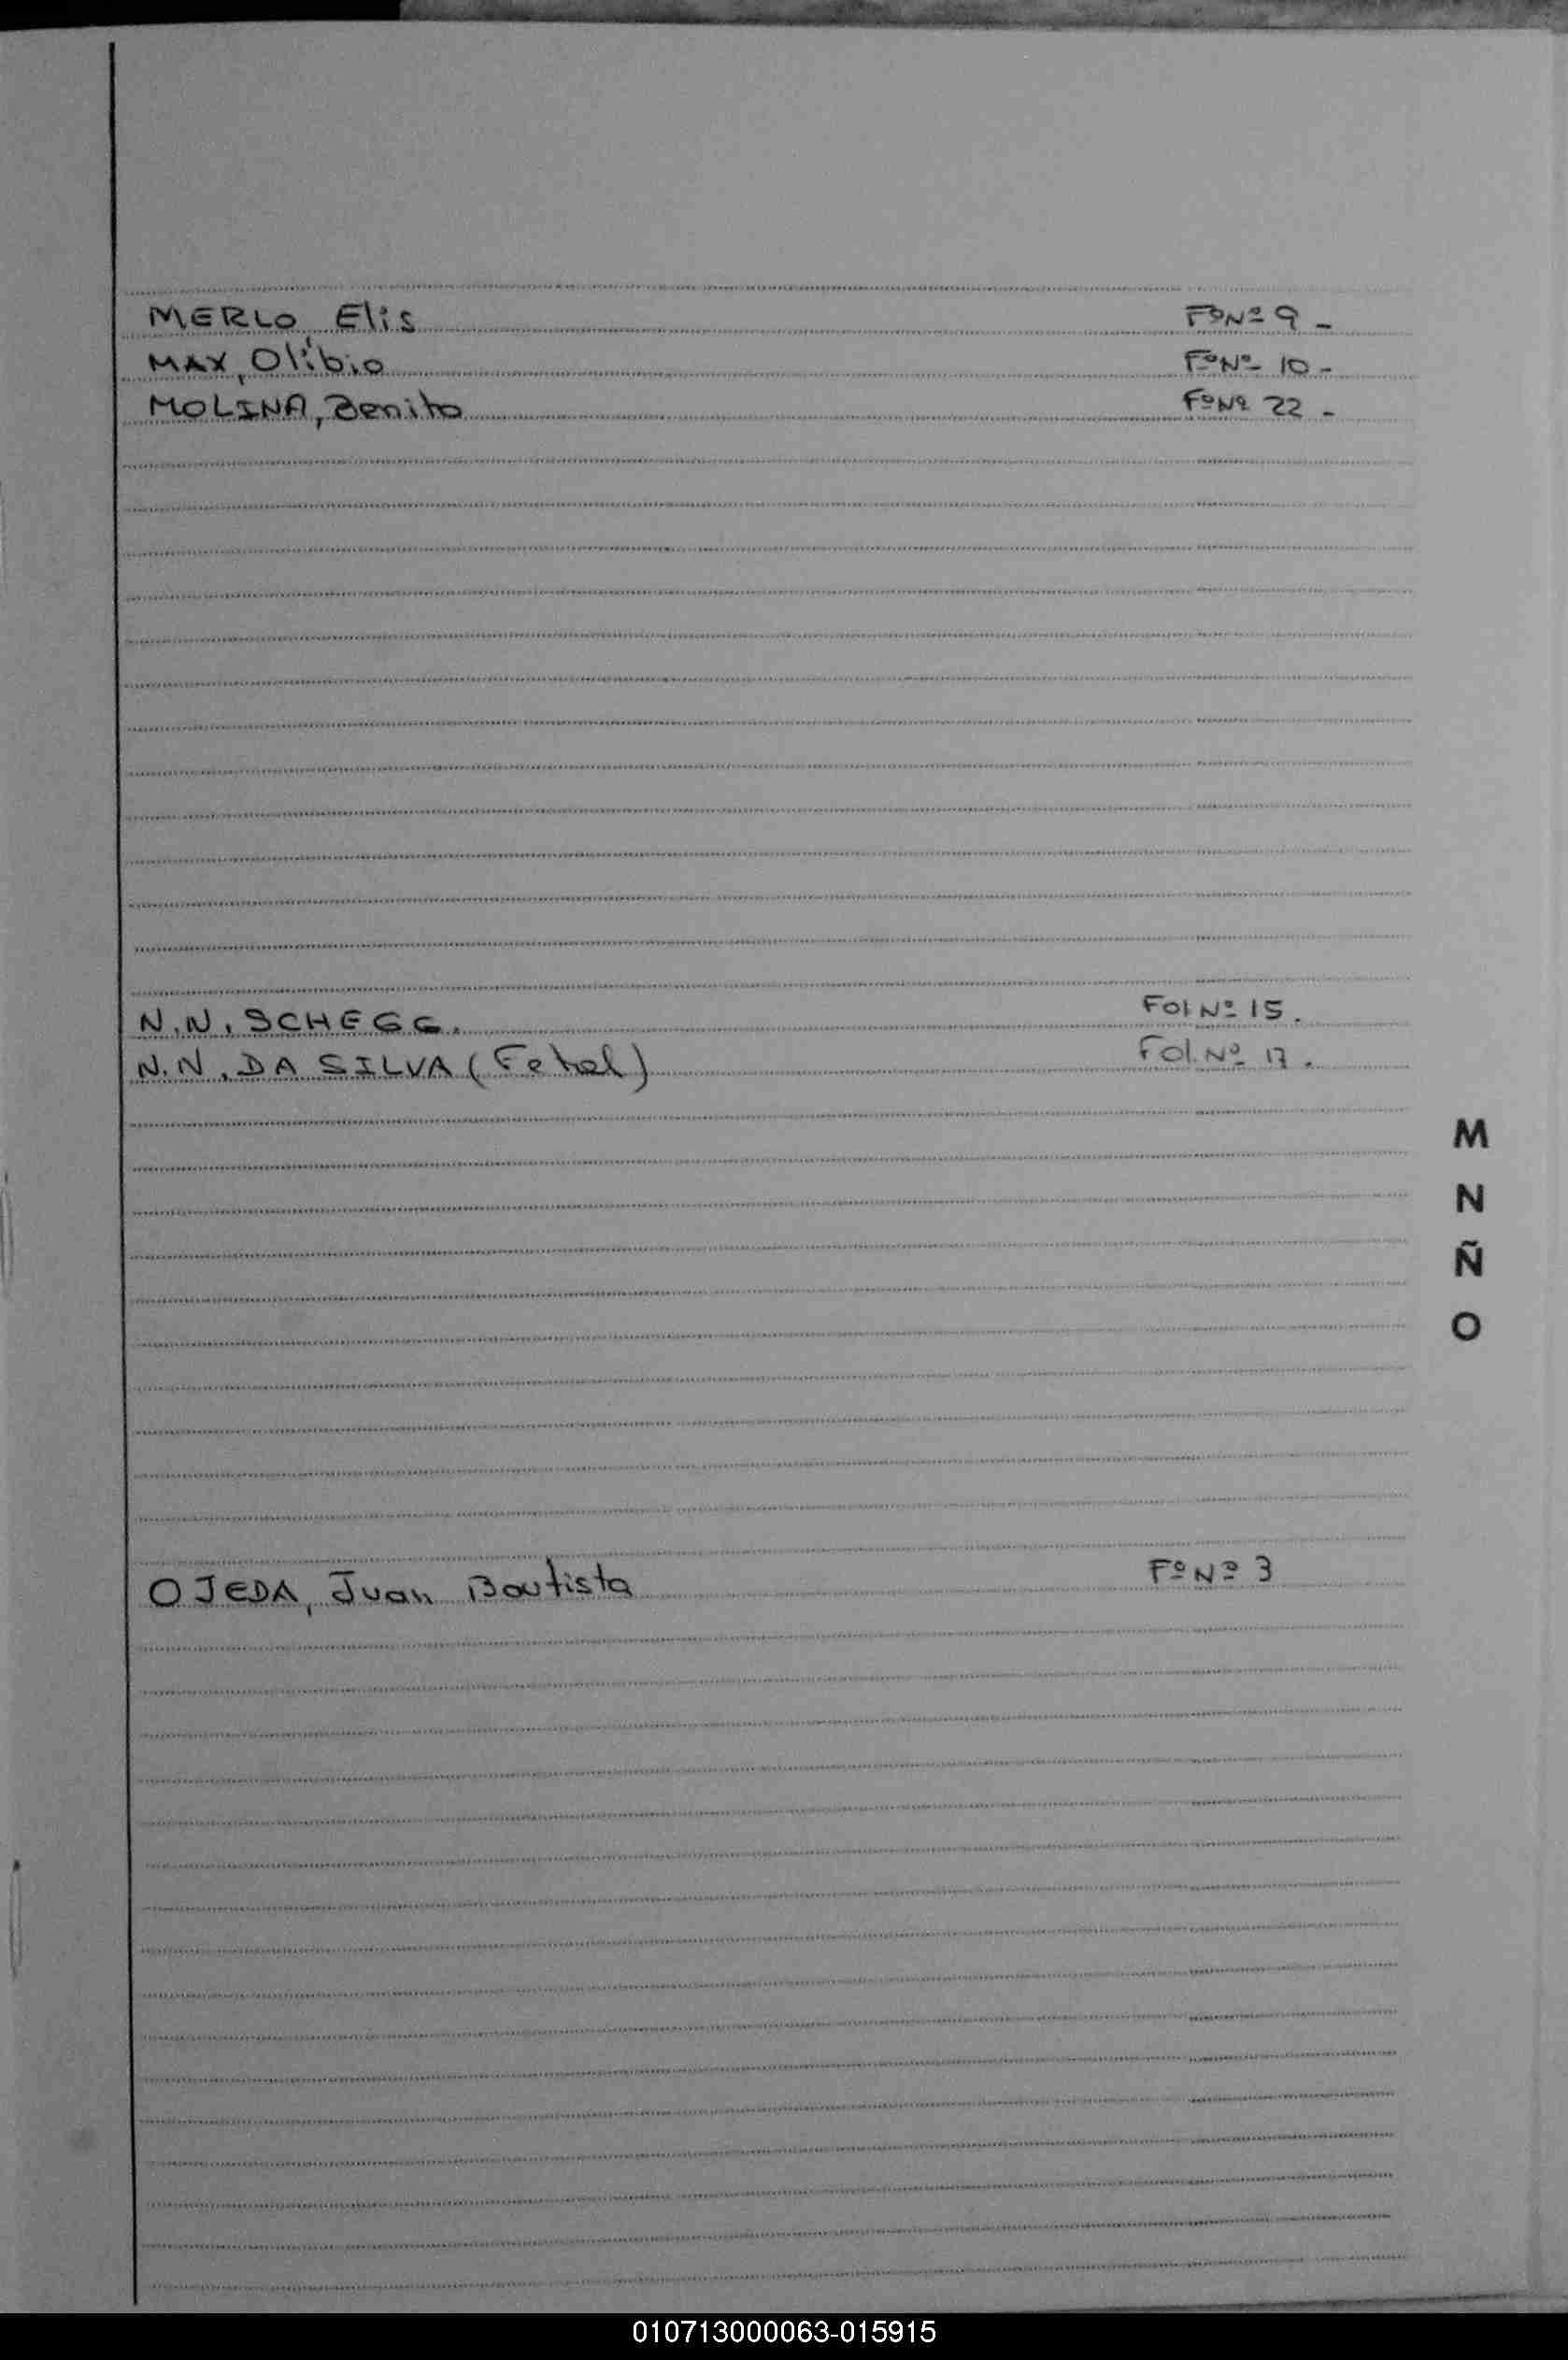 MERLO Elis F°Nº 9 -
MAX, Olíbio F°Nº 10 -
MOLINA, Benito FºNº 22 -
N.N. SCHEGG. Fol Nº 15.
N.N. DA SILVA (Fetal) Fol. Nº 17.
M
N
Ñ
O
OJEDA, Juan Bautista Fº Nº 3
010713000063-015915